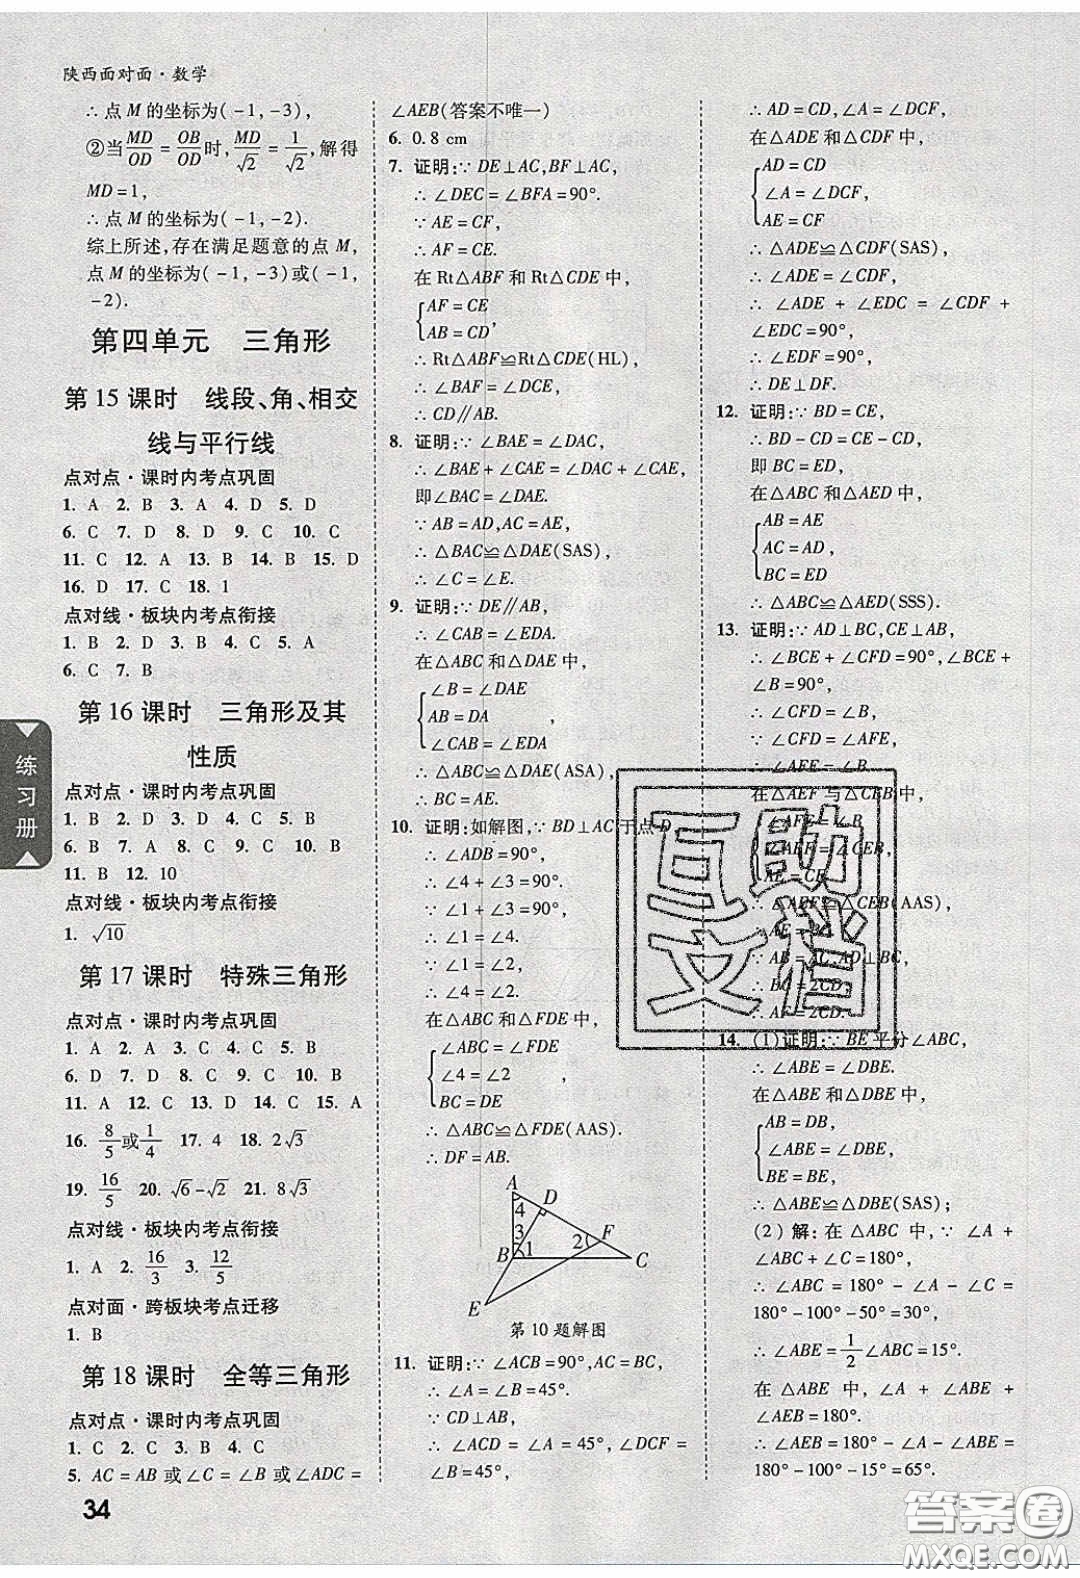 陕西面对面·数学
∴点 M 的坐标为(-1,-3),
②当MD/OD=OB/OD时,MD/√2=1/√2,解得
MD=1,
∴点 M 的坐标为(-1,-2).
综上所述,存在满足题意的点 M,
点 M 的坐标为(-1,-3)或(-1,
-2).
第四单元 三角形
第 15 课时 线段、角、相交
线与平行线
点对点·课时内考点巩固
1. A 2. B 3. A 4. D 5. D
6. C 7. D 8. D 9. C 10. C
11. C 12. A 13. B 14. B 15. D
16. D 17. C 18. 1
点对线·板块内考点衔接
1. B 2. D 3. B 4. C 5. A
6. C 7. B
第 16 课时 三角形及其
性质
点对点·课时内考点巩固
1. B 2. B 3. D 4. C 5. B
6. B 7. B 8. A 9. C 10. B
11. B 12. 10
点对线·板块内考点衔接
1. √10
第 17 课时 特殊三角形
点对点·课时内考点巩固
1. A 2. A 3. A 4. C 5. A
6. D 7. D 8. C 9. D 10. B
11. A 12. C 13. C 14. C 15. A
16. 8/5或1/4 17. 4 18. 2√3
19. 16/5 20. √6-√2 21. 8√3
点对线·板块内考点衔接
1. A 2. 16/3 3. 12/5
点对面·跨板块考点迁移
1. B
第 18 课时 全等三角形
点对点·课时内考点巩固
1. C 2. C 3. C 4. C
5. AC=AB 或∠C=∠B 或∠ADC=
34
练习册
∠AEB(答案不唯一)
6. 0.8 cm
7. 证明:∵DE⊥AC,BF⊥AC,
∴∠DEC=∠BFA=90°.
∵AE=CF,
∴AF=CE.
在 Rt△ABF 和 Rt△CDE 中,
{AF=CE
AB=CD,
∴Rt△ABF≌Rt△CDE(HL),
∴∠BAF=∠DCE,
∴CD∥AB.
8. 证明:∵∠BAE=∠DAC,
∴∠BAE+∠CAE=∠DAC+∠CAE,
即∠BAC=∠DAE.
∵AB=AD,AC=AE,
∴△BAC≌△DAE(SAS),
∴∠C=∠E.
9. 证明:∵DE∥AB,
∴∠CAB=∠EDA.
在△ABC 和△DAE 中,
{∠B=∠DAE
AB=DA ,
∠CAB=∠EDA
∴△ABC≌△DAE(ASA),
∴BC=AE.
10. 证明:如解图,∵BD⊥AC于点D,
∴∠ADB=90°,
∴∠4+∠3=90°.
∵∠1+∠3=90°,
∴∠1=∠4.
∵∠1=∠2,
∴∠4=∠2.
在△ABC 和△FDE 中,
{∠ABC=∠FDE
∠4=∠2 ,
BC=DE
∴△ABC≌△FDE(AAS).
∴DF=AB.
A
4
D
3
B
1
2
F
C
E
第 10 题解图
11. 证明:∵∠ACB=90°,AC=BC,
∴∠A=∠B=45°.
∵CD⊥AB,
∴∠ACD=∠A=45°,∠DCF=
∠B=45°,
∴AD=CD,∠A=∠DCF,
在△ADE 和△CDF 中,
{AD=CD
∠A=∠DCF,
AE=CF
∴△ADE≌△CDF(SAS),
∴∠ADE=∠CDF,
∴∠ADE+∠EDC=∠CDF+
∠EDC=90°,
∴∠EDF=90°,
∴DE⊥DF.
12. 证明:∵BD=CE,
∴BD-CD=CE-CD,
即 BC=ED,
在△ABC 和△AED 中,
{AB=AE
AC=AD,
BC=ED
∴△ABC≌△AED(SSS).
13. 证明:∵AD⊥BC,CE⊥AB,
∴∠BCE+∠CFD=90°,∠BCE+
∠B=90°,
∴∠CFD=∠B,
∵∠CFD=∠AFE,
∴∠AFE=∠B.
在△AEF 与△CEB 中,
{∠AFE=∠B
∠AEF=∠CEB,
AE=CE
∴△AEF≌△CEB(AAS),
∴AF=BC,
∵AB=AC,AD⊥BC,
∴BC=2CD,
∴AF=2CD.
14. (1)证明:∵BE平分∠ABC,
∴∠ABE=∠DBE,
在△ABE 和△DBE 中,
{AB=DB,
∠ABE=∠DBE,
BE=BE,
∴△ABE≌△DBE(SAS);
(2) 解:在△ABC 中,∵∠A+
∠ABC+∠C=180°,
∴∠ABC=180°-∠A-∠C=
180°-100°-50°=30°,
∴∠ABE=1/2∠ABC=15°.
在△ABE 中,∠A+∠ABE+
∠AEB=180°.
∴∠AEB=180°-∠A-∠ABE=
180°-100°-15°=65°.
互助
文档
答案圈
MXQE.COM